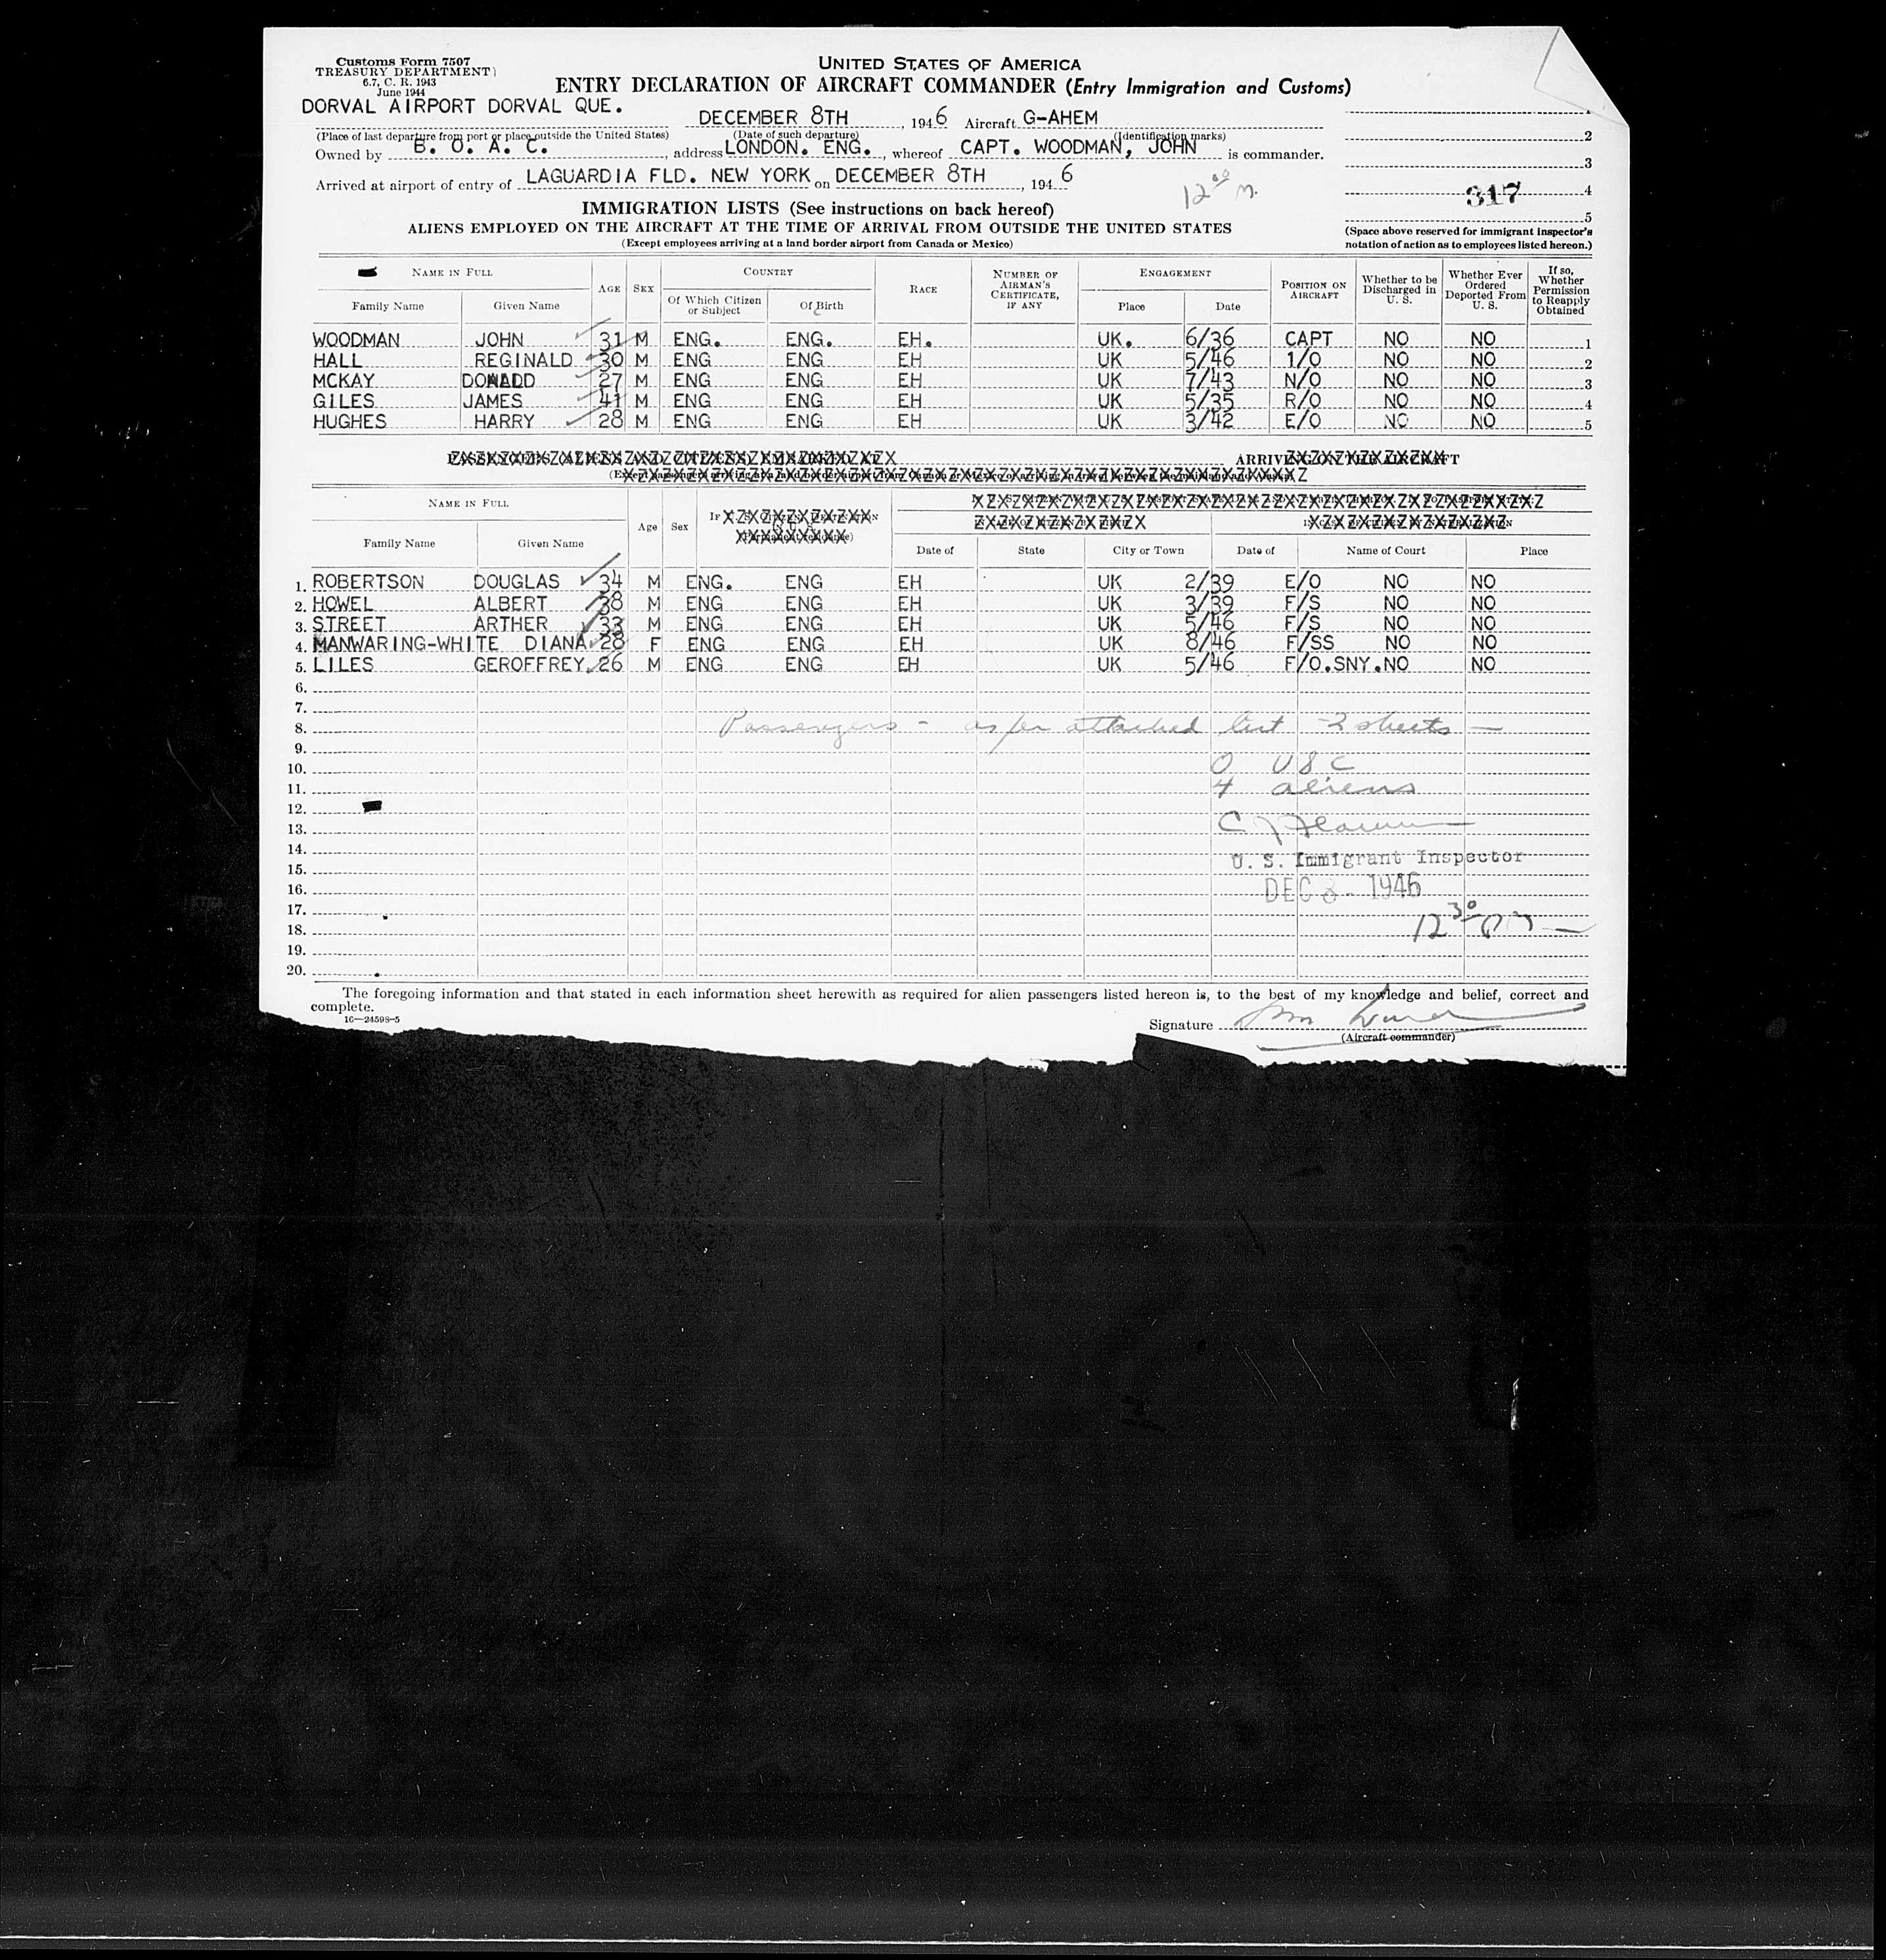 Customs Form 7507
TREASURY DEPARTMENT)
6.7, C. R. 1943
June 1944
UNITED STATES OF AMERICA
ENTRY DECLARATION OF AIRCRAFT COMMANDER (Entry Immigration and Customs)
DORVAL AIRPORT DORVAL QUE. DECEMBER 8TH, 1946 Aircraft G-AHEM
(Place of last departure from port or place outside the United States) (Date of such departure) (Identification marks)
Owned by B. O. A. C., address LONDON. ENG., whereof CAPT. WOODMAN, JOHN is commander.
Arrived at airport of entry of LAGUARDIA FLD. NEW YORK on DECEMBER 8TH, 1946
12 00 M.
1
2
3
317 4
5
(Space above reserved for immigrant inspector's
notation of action as to employees listed hereon.)
IMMIGRATION LISTS (See instructions on back hereof)
ALIENS EMPLOYED ON THE AIRCRAFT AT THE TIME OF ARRIVAL FROM OUTSIDE THE UNITED STATES
(Except employees arriving at a land border airport from Canada or Mexico)
NAME IN FULL AGE SEX COUNTRY RACE NUMBER OF AIRMAN'S CERTIFICATE, IF ANY ENGAGEMENT POSITION ON AIRCRAFT Whether to be Discharged in U. S. Whether Ever Ordered Deported From U. S. If so, Whether Permission to Reapply Obtained
Family Name Given Name Of Which Citizen or Subject Of Birth Place Date
WOODMAN JOHN 31 M ENG. ENG. EH. UK. 6/36 CAPT NO NO 1
HALL REGINALD 30 M ENG ENG EH UK 5/46 1/O NO NO 2
MCKAY DONALD 27 M ENG ENG EH UK 7/43 N/O NO NO 3
GILES JAMES 41 M ENG ENG EH UK 5/35 R/O NO NO 4
HUGHES HARRY 28 M ENG ENG EH UK 3/42 E/O NO NO 5
ARRIVING ON THE AIRCRAFT
NAME IN FULL Age Sex
Family Name Given Name Date of State City or Town Date of Name of Court Place
1. ROBERTSON DOUGLAS 34 M ENG. ENG EH UK 2/39 E/O NO NO
2. HOWEL ALBERT 38 M ENG ENG EH UK 3/39 F/S NO NO
3. STREET ARTHER 33 M ENG ENG EH UK 5/46 F/S NO NO
4. MANWARING-WHITE DIANA 28 F ENG ENG EH UK 8/46 F/SS NO NO
5. LILES GEROFFREY 26 M ENG ENG EH UK 5/46 F/O.SNY. NO NO
6.
7.
8. Passengers - as per attached list - 2 sheets -
9.
10. 0 USC
11. 4 aliens
12.
13.
14.
U. S. Immigrant Inspector
15.
16. DEC 8 - 1946
17.
18. 12 30 PM
19.
20.
The foregoing information and that stated in each information sheet herewith as required for alien passengers listed hereon is, to the best of my knowledge and belief, correct and
complete.
16—24598-5
Signature
(Aircraft commander)